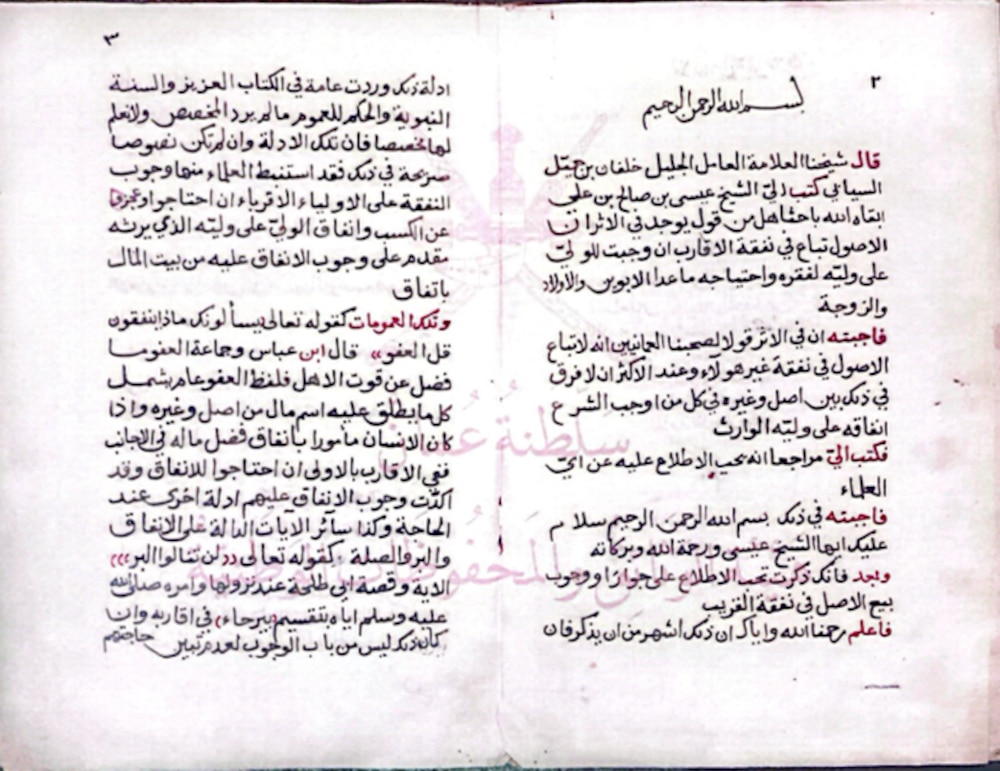 ٢
بسم الله الرحمن الرحيم
قال شيخنا العلامة العامل الجليل خلفان بن جميل
السيابي كتب اليّ الشيخ عيسى بن صالح بن علي
ابقاه الله باحثا هل من قول يوجد في الاثر ان
الاصول تباع في نفقة الاقارب ان وجبت للولي
على وليّه لفقره واحتياجه ماعدا الابوين والاولاد
والزوجة
فاجبته ان في الاثر قولا لصحبنا العمانيين انه لا تباع
الاصول في نفقة غير هولآء وعند الاكثر ان لا فرق
في ذلك بين اصل وغيره في كل من اوجب الشرع
انفاقه على وليّه الوارث
فكتب اليّ مراجعا انه يحب الاطلاع عليه عن اي
العلماء
فاجبته في ذلك بسم الله الرحمن الرحيم سلام
عليك ايها الشيخ عيسى ورحمة الله وبركاته
وبعد فانك ذكرت تحب الاطلاع على جواز او وجوب
بيع الاصل في نفقة القريب
فاعلم رحمنا الله واياك ان ذلك اشهر من ان يذكر فان
٣
ادلة ذلك وردت عامة في الكتاب العزيز والسنة
النبوية والحكم للعموم مالم يرد المخصص ولا نعلم
لها مخصصا فان تلك الادلة وان لم تكن نصوصا
صريحة في ذلك فقد استنبط العلماء منها وجوب
النفقة على الاولياء الاقرباء ان احتاجوا وعجزوا
عن الكسب وانفاق الوليّ على وليّه الذي يرثه
مقدم على وجوب الانفاق عليه من بيت المال
باتفاق
وتلك العمومات كقوله تعالى يسألونك ماذا ينفقون
قل العفو» قال ابن عباس وجماعة العفو ما
فضل عن قوت الاهل فلفظ العفو عام يشمل
كل ما يطلق عليه اسم مال من اصل وغيره واذا
كان الانسان مأمورا بأنفاق فضل ماله في الاجانب
ففي الاقارب بالاولى ان احتاجوا للانفاق وقد
اكدت وجوب الانفاق عليهم ادلة اخرى عند
الحاجة وكذا سآئر الآيات الدالة على الانفاق
والبر والصلة كقوله تعالى ((لن تنالوا البر)))
الاية وقصة ابي طلحة عند نزولها وامره صلى الله
عليه وسلم اياه بتقسيم «بيرحاء» في اقاربه وان
كان ذلك ليس من باب الوجوب لعدم تبين حاجتهم
سلطنة عُمان